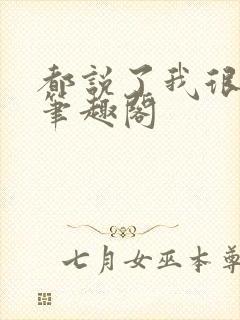 都説了我很
筆趣閣
七月女巫本尊